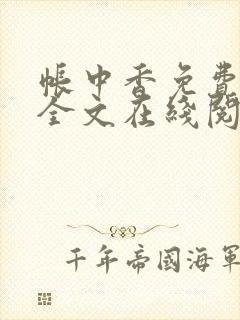 帳中香免費
全文在綫閱
千年帝國海軍